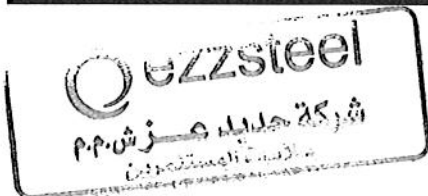 ezzsteel
شركة حديد عـــز ش.م.م
علاقات المستثمرين